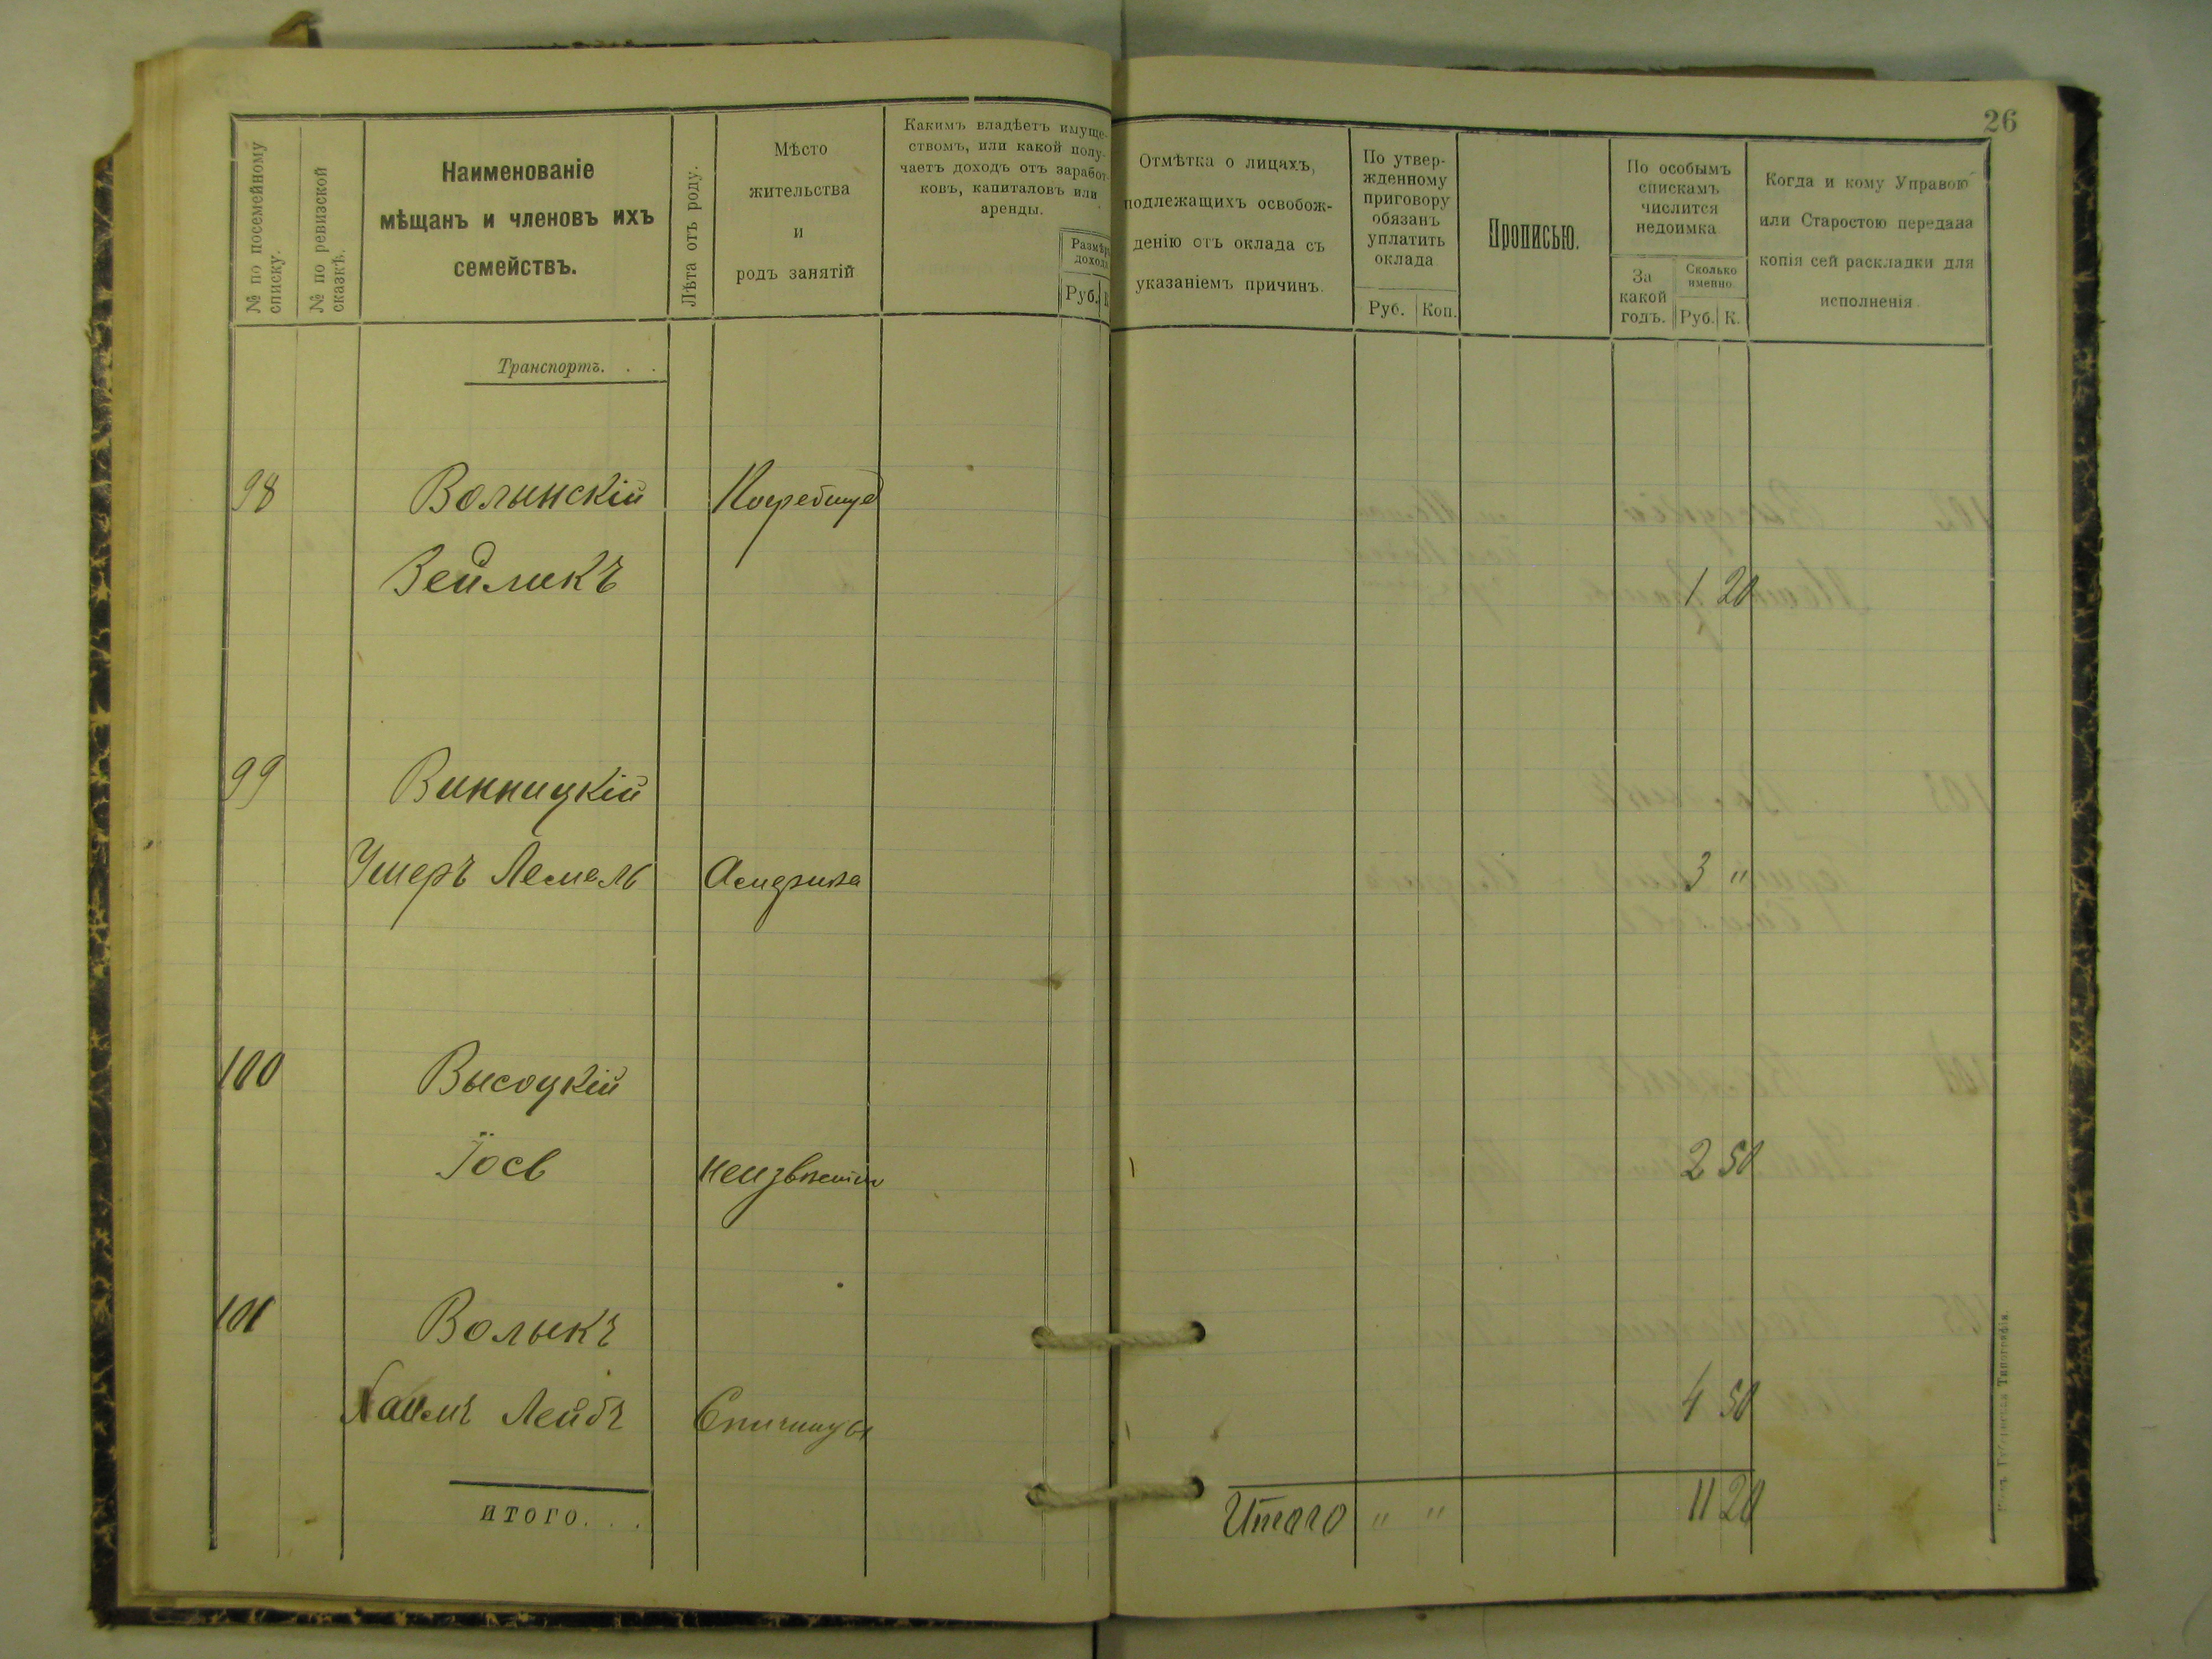 26
№ по посемейному
списку.
№ по ревизской
сказкѣ.
Наименованіе
мѣщанъ и членовъ ихъ
семействъ.
Лѣта отъ роду.
Мѣсто
жительства
и
родъ занятій
Какимъ владѣетъ имуще-
ствомъ, или какой полу-
чаетъ доходъ отъ заработ-
ковъ, капиталовъ или
аренды.
Размѣръ
дохода
Руб. К
Отмѣтка о лицахъ,
подлежащихъ освобож-
денію отъ оклада съ
указаніемъ причинъ.
По утвер-
жденному
приговору
обязанъ
уплатить
оклада
Руб. Коп.
Прописью.
По особымъ
спискамъ
числится
недоимка
За
какой
годъ.
Сколько
именно.
Руб. К.
Когда и кому Управою
или Старостою передана
копія сей раскладки для
исполненія.
Транспортъ. . .
98 Волынскій Погребище
Вейликъ 1 20
99 Винницкій
Ушеръ Лемель 3 "
100 Высоцкій
Іосъ неизвѣстно 2 50
101 Волыкъ
Хаимъ Лейбъ Спичинцы 4 50
итого. . .
Итого " " 11 20